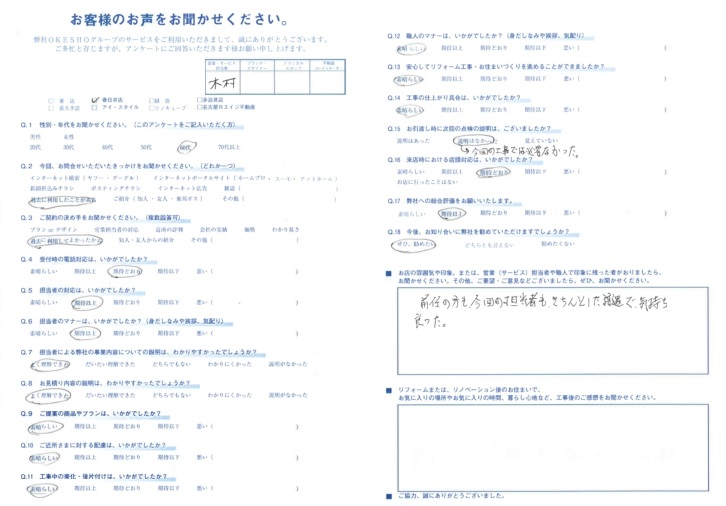 お客様のお声をお聞かせください。
弊社OKESHOグループのサービスをご利用いただきまして、誠にありがとうございます。
ご多忙と存じますが、アンケートにご回答いただきます様お願い申し上げます。
木村
Q.1 性別・年代をお聞かせください。（このアンケートをご記入いただく方）
男性 女性
20代 30代 40代 50代 60代 70代以上
Q.2 今回、お問合せいただいたきっかけをお聞かせください。（どれか一つ）
インターネット検索（ヤフー・グーグル） インターネットポータルサイト（ホームプロ・スーモ・アットホーム）
新聞折込みチラシ ポスティングチラシ インターネット広告 雑誌（ ）
過去に利用したことがある ご紹介（知人・友人・東邦ガス） その他（ ）
Q.3 ご契約の決め手をお聞かせください。（複数回答可）
プラン or デザイン 営業担当者の対応 近所の評判 会社の実績 価格 わかり易さ
過去に利用してよかったから 知人・友人からの紹介 その他（ ）
Q.4 受付時の電話対応は、いかがでしたか？
素晴らしい 期待以上 期待どおり 期待以下 悪い（ ）
Q.5 担当者の対応は、いかがでしたか？
素晴らしい 期待以上 期待どおり 期待以下 悪い（ ）
Q.6 担当者のマナーは、いかがでしたか？（身だしなみや挨拶、気配り）
素晴らしい 期待以上 期待どおり 期待以下 悪い（ ）
Q.7 担当者による弊社の事業内容についての説明は、わかりやすかったでしょうか？
よく理解できた だいたい理解できた どちらでもない わかりにくかった 説明がなかった
Q.8 お見積り内容の説明は、わかりやすかったでしょうか？
よく理解できた だいたい理解できた どちらでもない わかりにくかった 説明がなかった
Q.9 ご提案の商品やプランは、いかがでしたか？
素晴らしい 期待以上 期待どおり 期待以下 悪い（ ）
Q.10 ご近所さまに対する配慮は、いかがでしたか？
素晴らしい 期待以上 期待どおり 期待以下 悪い（ ）
Q.11 工事中の美化・後片付けは、いかがでしたか？
素晴らしい 期待以上 期待どおり 期待以下 悪い（ ）
Q.12 職人のマナーは、いかがでしたか？（身だしなみや挨拶、気配り）
素晴らしい 期待以上 期待どおり 期待以下 悪い（ ）
Q.13 安心してリフォーム工事・お住まいづくりを進めることができましたか？
素晴らしい 期待以上 期待どおり 期待以下 悪い（ ）
Q.14 工事の仕上がり具合は、いかがでしたか？
素晴らしい 期待以上 期待どおり 期待以下 悪い（ ）
Q.15 お引渡し時に次回の点検の説明は、ございましたか？
説明はあった 説明はなかった 覚えていない
今回の工事では必要なかった。
Q.16 来店時における店頭対応は、いかがでしたか？
素晴らしい 期待以上 期待どおり 期待以下 悪い（ ）
お店に行ったことはない
Q.17 弊社への総合評価をお願いいたします。
素晴らしい 期待以上 期待どおり 期待以下 悪い（ ）
Q.18 今後、お知り合いに弊社を勧めていただけますでしょうか？
ぜひ、勧めたい どちらとも言えない 勧めたくない
■ お店の雰囲気や印象、または、営業（サービス）担当者や職人で印象に残った者がおりましたら、
お聞かせください。その他、ご要望・ご意見などございましたら、ぜひ、お聞かせください。
前任の方も今回の担当者も、きちんとした
気持ち
良かった。
■ リフォームまたは、リノベーション後のお住まいで、
お気に入りの場所やお気に入りの時間、暮らし心地など、工事後のご感想をお聞かせください。
■ ご協力、誠にありがとうございました。